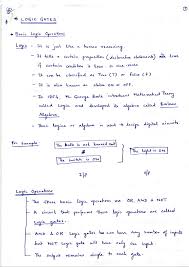 LOGIC GATES
Basic Logic Operations
Logic - It is just like a human reasoning.
- It tells a certain proposition (declarative statement) is true
if certain condition is true or are true.
- It can be classified as True (T) or False (F)
- It is also known as state on or off.
- In 1854, The George Boole introduced Mathematical Theory
called Logic and developed its algebra called Boolean
Algebra.
- These logic or algebra is used to design digital circuits.
For Example: The Bulb is not burned out The Light is ON
The switch is ON
I/P O/P
Logic Operations
- The three basic logic operations are OR, AND & NOT
- A circuit that performs these logic operations are called
Logic gates.
- AND & OR Logic gates can have any number of inputs
but NOT Logic gate will have only one input.
- The output remains single to each gate.